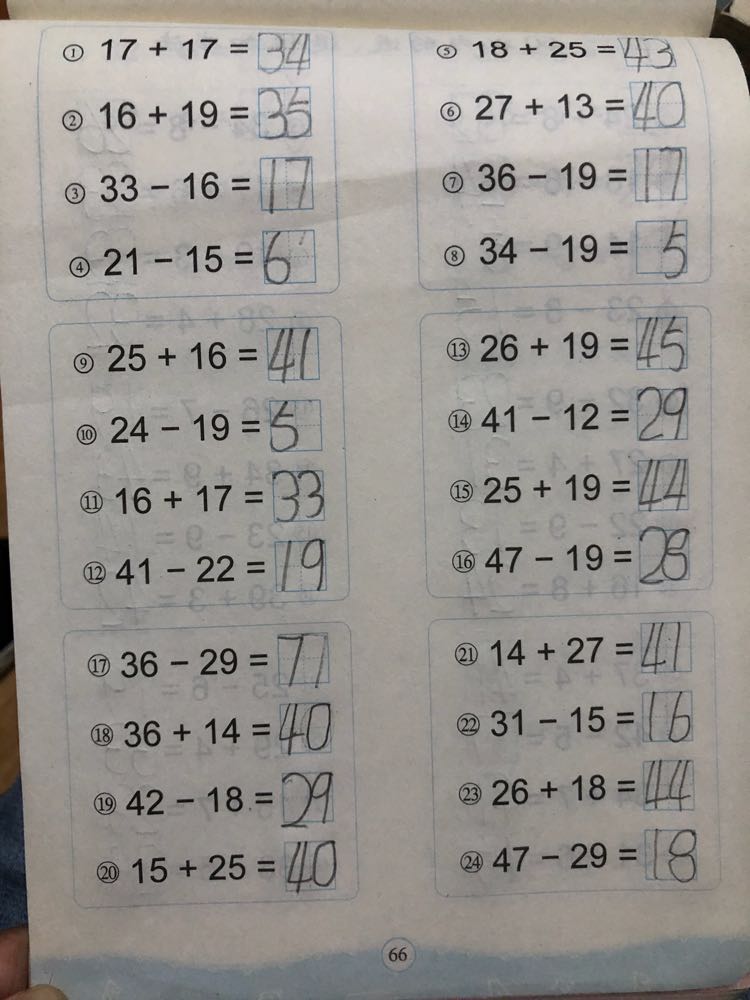 ① 17 + 17 = 34
② 16 + 19 = 35
③ 33 − 16 = 17
④ 21 − 15 = 6
⑤ 18 + 25 = 43
⑥ 27 + 13 = 40
⑦ 36 − 19 = 17
⑧ 34 − 19 = 5
⑨ 25 + 16 = 41
⑩ 24 − 19 = 5
⑪ 16 + 17 = 33
⑫ 41 − 22 = 19
⑬ 26 + 19 = 45
⑭ 41 − 12 = 29
⑮ 25 + 19 = 44
⑯ 47 − 19 = 28
⑰ 36 − 29 = 77
⑱ 36 + 14 = 40
⑲ 42 − 18 = 29
⑳ 15 + 25 = 40
㉑ 14 + 27 = 41
㉒ 31 − 15 = 16
㉓ 26 + 18 = 44
㉔ 47 − 29 = 18
66